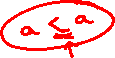 a ≤ a